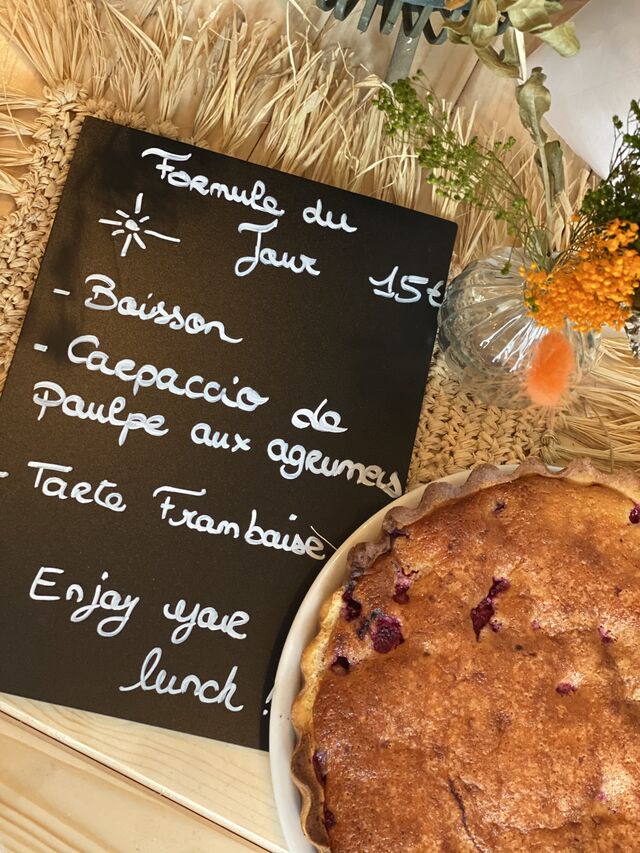 Formule du
Jour
15€
- Boisson
- Carpaccio de
Poulpe aux agrumes
- Tarte Framboise
Enjoy your
lunch !